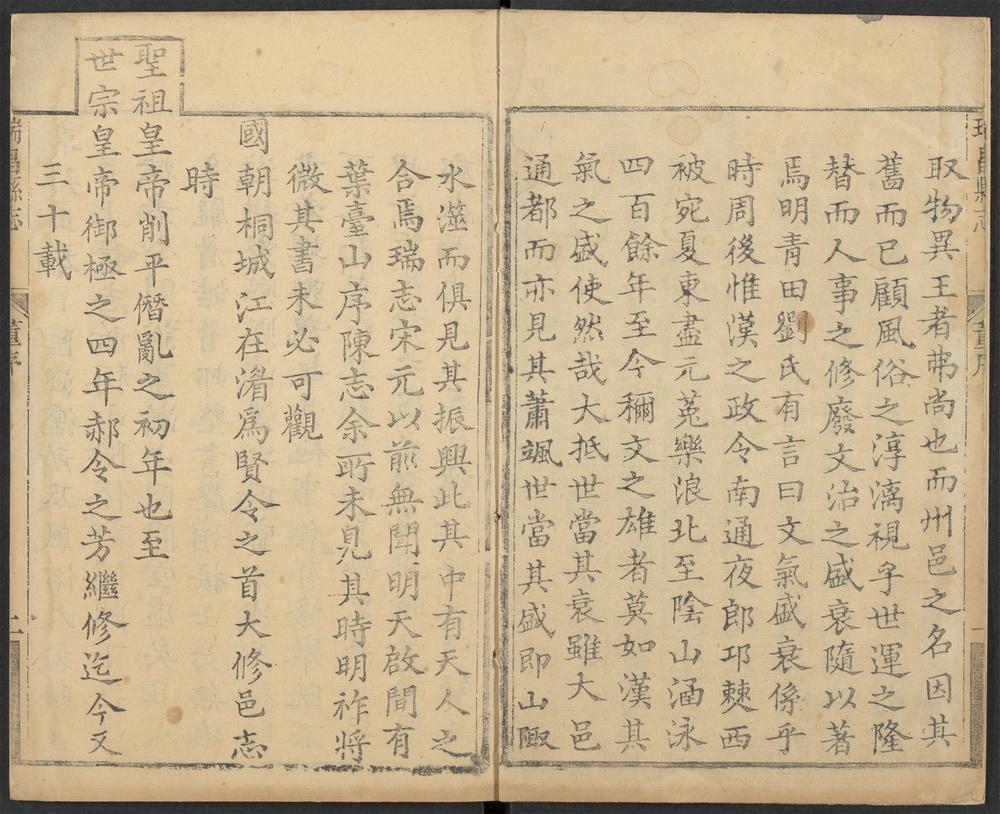 取物異王者弗尚也而州邑之名因其
舊而已顧風俗之淳漓視乎世運之隆
替而人事之修廢文治之盛衰隨以著
焉明青田劉氏有言曰文氣盛衰係乎
時周後惟漢之政令南通夜郎邛僰西
被宛夏東盡元菟樂浪北至陰山涵泳
四百餘年至今稱文之雄者莫如漢其
氣之盛使然哉大抵世當其衰雖大邑
通都而亦見其蕭颯世當其盛即山陬
水澨而俱見其振興此其中有天人之
合焉瑞志宋元以前無聞明天啟間有
葉臺山序陳志余所未見其時明祚將
微其書未必可觀
國朝桐城江在湄爲賢令之首大修邑志
時
聖祖皇帝削平僭亂之初年也至
世宗皇帝御極之四年郝令之芳繼修迄今又
三十載
瑞昌縣志
董序
二
瑞昌縣志
董序